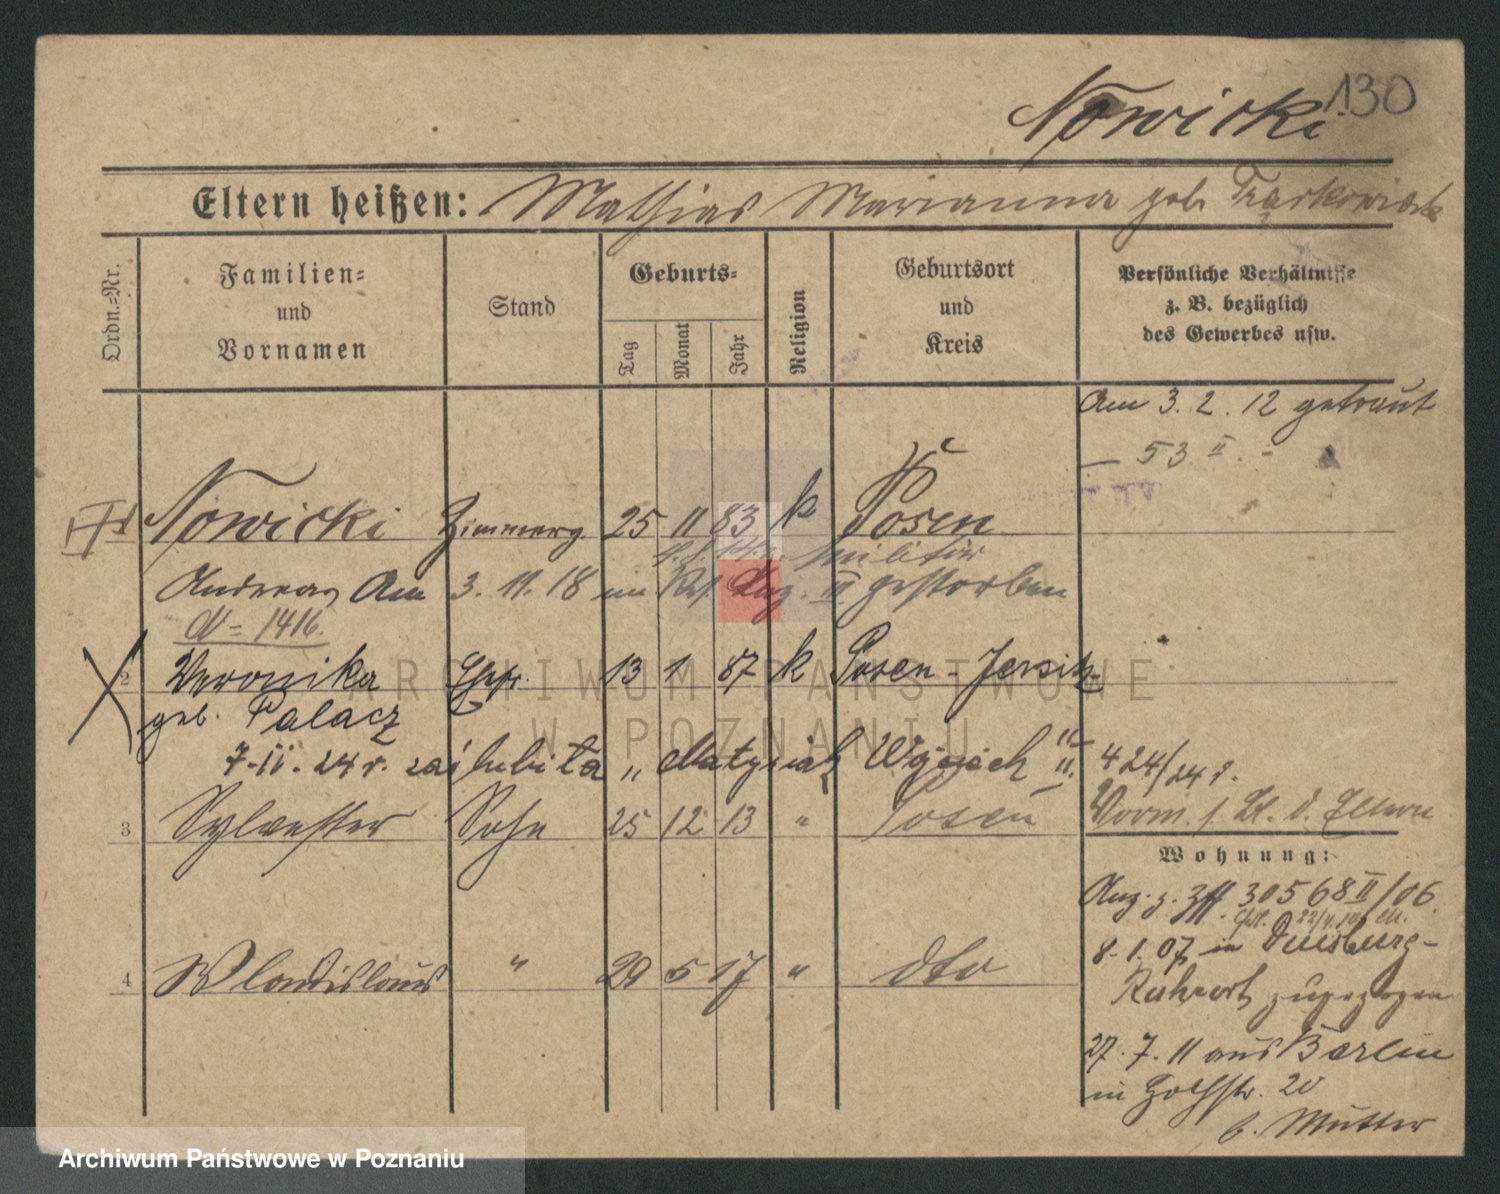 130
Nowicki
Eltern heißen: Mathias Marianna geb.
Ordn.=Nr.
Familien=
und
Vornamen
Stand
Geburts=
Tag
Monat
Jahr
Religion
Geburtsort
und
Kreis
Persönliche Verhältnisse
z. B. bezüglich
des Gewerbes usw.
Am 3. 2. 12 getraut
53 II.
Nowicki Zimmerg. 25 11 83 k Posen
Militär
Andreas Am 3. 11. 18 im II gestorben
N= 1416.
2 Veronika Ehefr. 13 1 87 k Posen-Jersitz
geb. Palacz
7-II-24 r. „ Matysiak 424/24 r.
3 Sylvester Sohn 25 12 13 " Posen
Vorm. d. Eltern
Wohnung:
30568 II/06.
8.1.07 in Duisburg-
4 Wladislaus " 29 5 17 " dto
Ruhrort zugezogen
27.7.11 aus Berlin
in 20
b. Mutter
ARCHIWUM PAŃSTWOWE
W POZNANIU
Archiwum Państwowe w Poznaniu